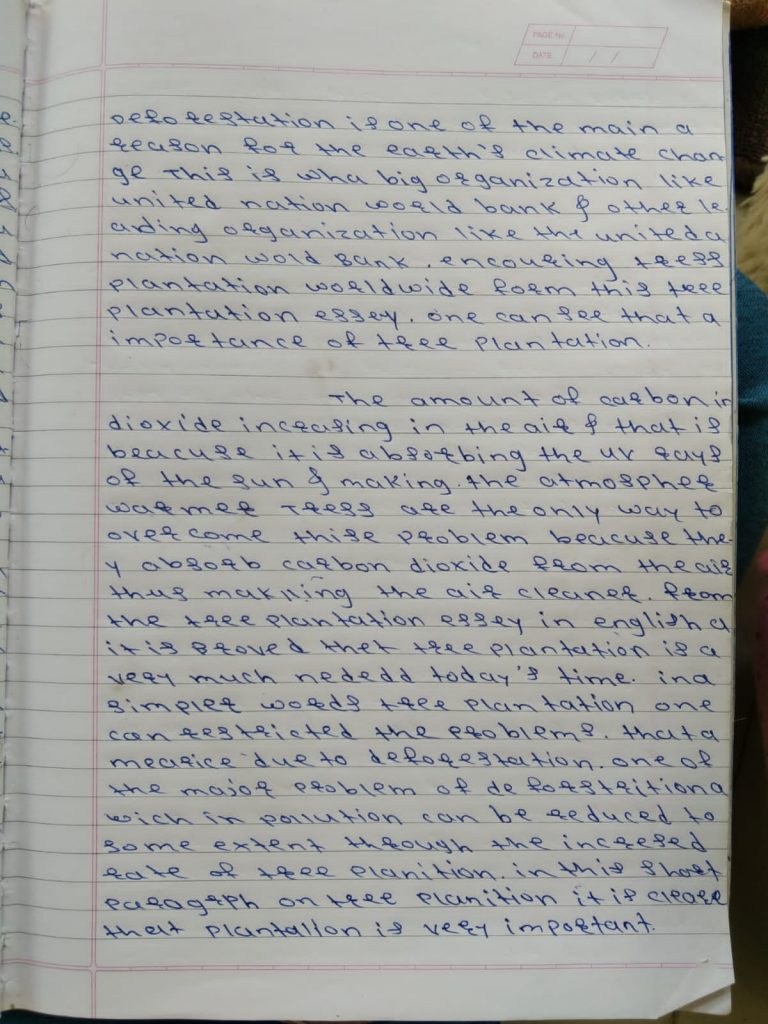 PAGE No.
DATE / /
Deforestation is one of the main a
reason for the earth's climate chan
ge This is wha big organization like
united nation world bank & other le
ading organization like the united a
nation wold Bank. encouring tress
plantation worldwide form this tree
plantation essey. one can see that a
importance of tree plantation.
The amount of carbon in
dioxide increasing in the air & that is
beacuse it is absorbing the UV rays
of the sun & making. the atmospher
warmer Tress are the only way to
overcome thise problem beacuse the
y absorb carbon dioxide from the air
thus makning the air cleaner. from
the tree plantation essey in english a
it is proved thet tree plantation is a
very much nededd today's time. in a
simpler words tree plantation one
can restricted the problems. that a
mearice due to deforestation. one of
the major problem of deforstrition a
wich in pollution can be reduced to
some extent through the incresed
rate of tree planition. in this short
paragraph on tree planition it is cleare
thet plantation is very important.